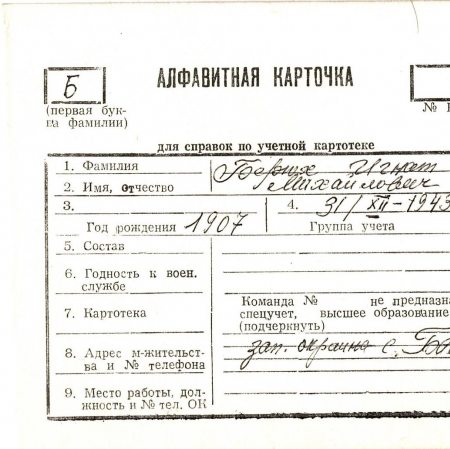 Б
АЛФАВИТНАЯ КАРТОЧКА
(первая бук-
ва фамилии)
№
для справок по учетной картотеке
1. Фамилия Игнат
2. Имя, отчество Михайлович
3. 4. 31/XII-1943
Год рождения 1907 Группа учета
5. Состав
6. Годность к воен.
службе
Команда № не предназна
7. Картотека спецучет, высшее образование
(подчеркнуть)
8. Адрес м-жительст-
ва и № телефона зап. окраина с.
9. Место работы, дол-
жность и № тел. ОК